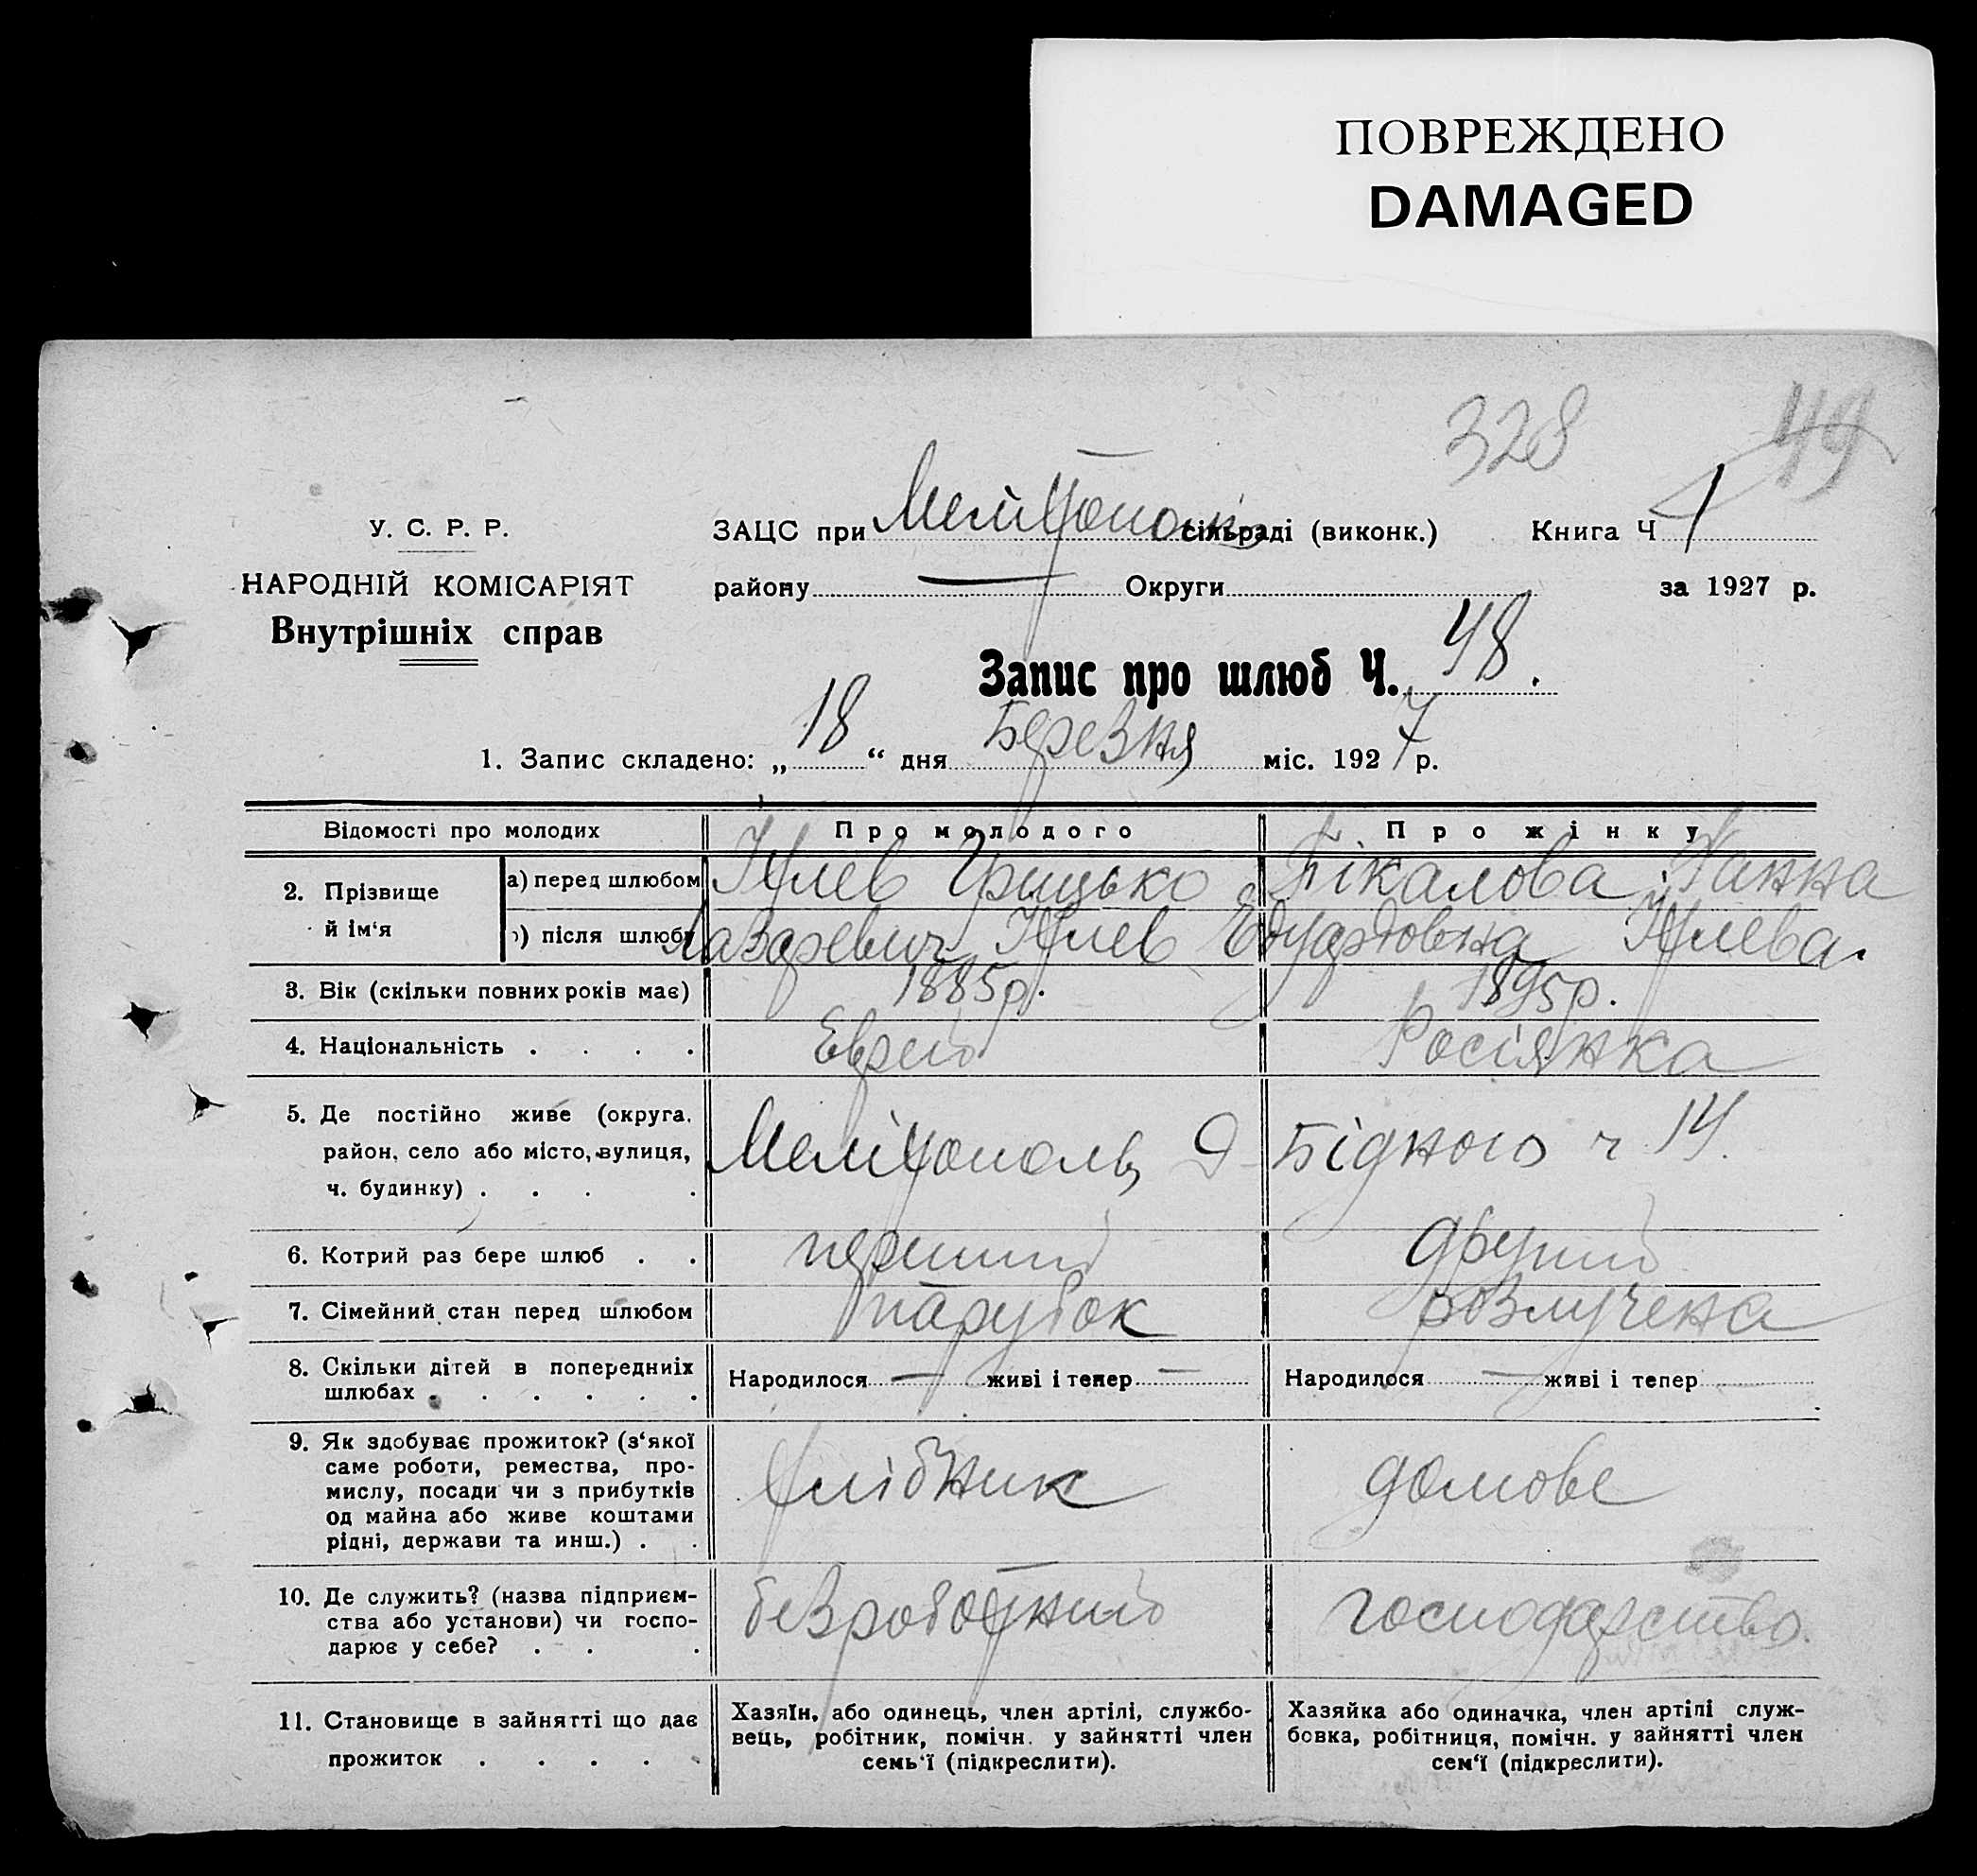 ПОВРЕЖДЕНО
DAMAGED
328 49
У. С. Р. Р.
НАРОДНІЙ КОМІСАРІЯТ
Внутрішніх справ
ЗАЦС при сільраді (виконк.) Книга Ч 1
району — Округи за 1927 р.
Запис про шлюб Ч. 48.
1. Запис складено: „18“ дня Березня міс. 1927 р.
Відомості про молодих Про молодого Про жінку
2. Прізвище й ім‘я
а) перед шлюбом Грицько Бікалова Ганна
б) після шлюбу Лазаревич Едуардовна
3. Вік (скільки повних років має) 1885р. 1895р.
4. Національність . . . . Еврей Росіянка
5. Де постійно живе (округа, район, село або місто, вулиця, ч. будинку) . . . . Мелітополь Д-Бідного ч 14.
6. Котрий раз бере шлюб . . перший другий
7. Сімейний стан перед шлюбом парубок розлучена
8. Скільки дітей в попередниіх шлюбах . . . . . . Народилося — живі і тепер — Народилося — живі і тепер
9. Як здобуває прожиток? (з‘якої саме роботи, ремества, промислу, посади чи з прибутків од майна або живе коштами рідні, держави та инш.) . . домове
10. Де служить? (назва підприємства або установи) чи господарює у себе? . . . безроботний господарство.
11. Становище в зайнятті що дає прожиток . . . . .
Хазяїн, або одинець, член артілі, службовець, робітник, помічн. у зайнятті член семь‘ї (підкреслити).
Хазяйка або одиначка, член артілі службовка, робітниця, помічн. у зайнятті член сем‘ї (підкреслити).